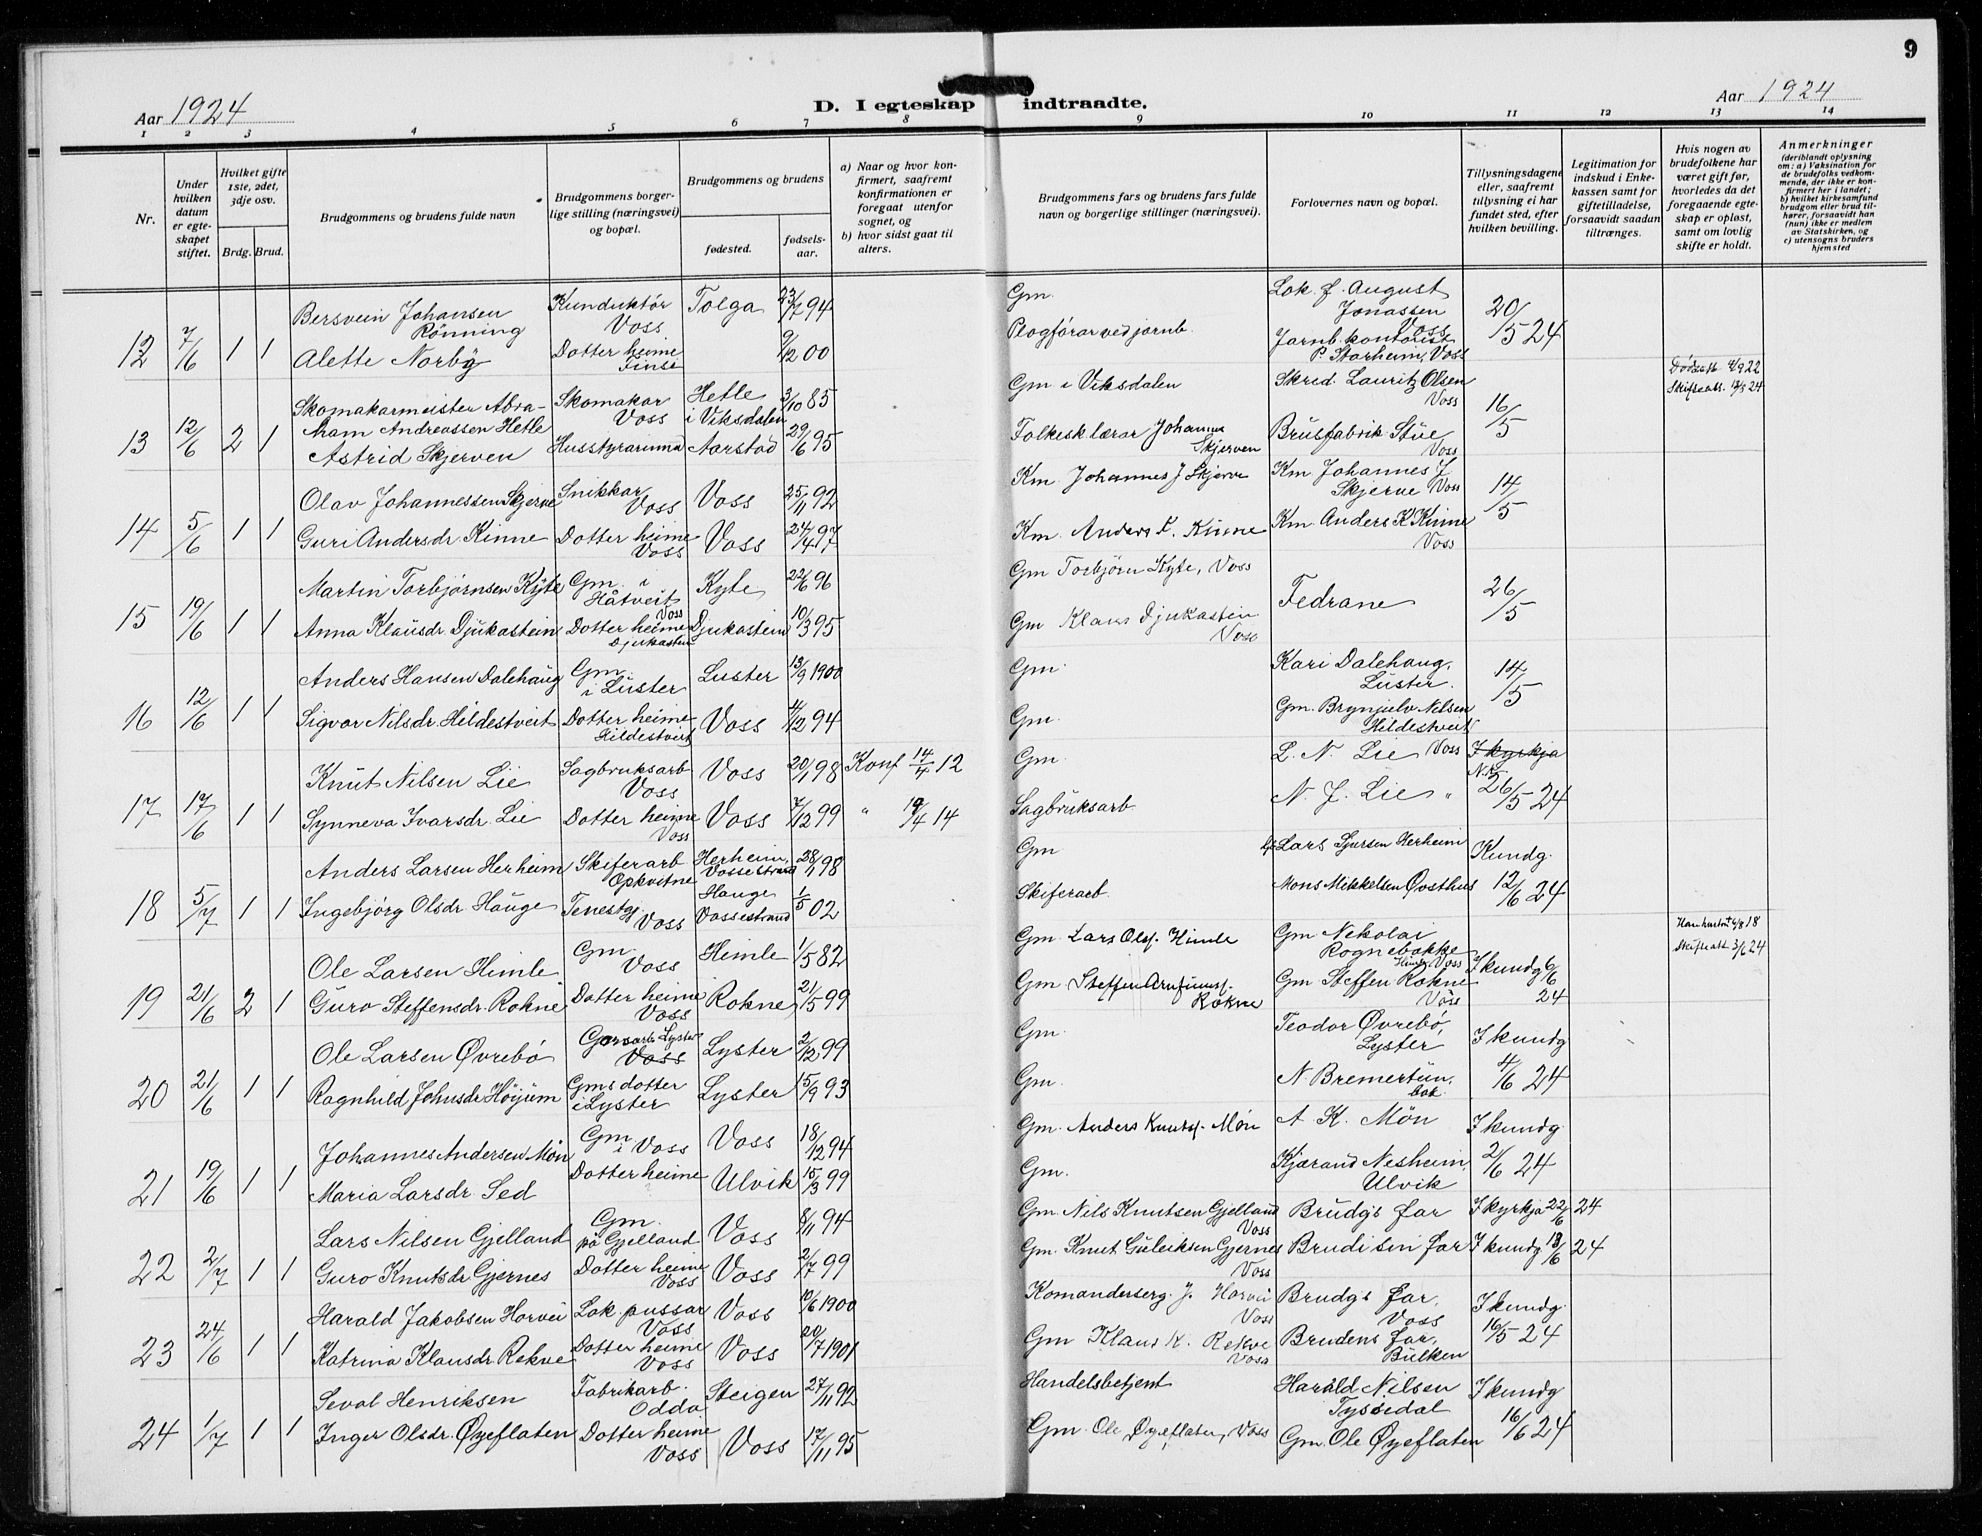 9
Aar 1924
D. I egteskap indtraadte.
Aar 1924
1 2 3 4 5 6 7 8 9 10 11 12 13 14
Nr.
Under hvilken datum er egteskapet stiftet.
Hvilket gifte 1ste, 2det, 3dje osv.
Brdg. Brud.
Brudgommens og brudens fulde navn
Brudgommens borgerlige stilling (næringsvei) og bopæl.
Brudgommens og brudens
fødested.
fødselsaar.
a) Naar og hvor konfirmert, saafremt konfirmationen er foregaat utenfor sognet, og
b) hvor sidst gaat til alters.
Brudgommens fars og brudens fars fulde navn og borgerlige stillinger (næringsvei).
Forlovernes navn og bopæl.
Tillysningsdagene eller, saafremt tillysning ei har fundet sted, efter hvilken bevilling.
Legitimation for indskud i Enkekassen samt for giftetilladelse, forsaavidt saadan tiltrænges.
Hvis nogen av brudefolkene har været gift før, hvorledes da det foregaaende egteskap er opløst, samt om lovlig skifte er holdt.
Anmerkninger
(deriblandt oplysning om: a) Vaksination for de brudefolks vedkommende, der ikke er konfirmert her i landet; b) hvilket kirkesamfund brudgom eller brud tilhører, forsaavidt han (hun) ikke er medlem av Statskirken, og c) utensogns bruders hjemsted
12 7/6 1 1
Bersvein Johansen Rönning Kunduktör Voss Tolga 23/7 94 Gm. Lok. f. August Jonassen Voss 20/5 24
Alette Norby Dotter heime Finse 9/12 00 Plogförar ved jarnb. Jarnb. kontorist P. Starheim, Voss
13 12/6 2 1
Skomakarmeister Abraham Andreassen Hetle Skomakar Voss Hetle i Viksdalen 3/10 85 Gm i Viksdalen Skred. Lauritz Olsen Voss 16/5 Skifteatt.
Astrid Skjerven Husstyrarinna Aarstad 29/6 95 Folkesklærar Johannes Skjerven Brusfabrik. Stüe Voss
14 5/6 1 1
Olav Johannessen Skjerve Snikkar Voss Voss 25/11 92 Km. Johannes J Skjerve Km. Johannes J. Skjerve Voss 14/5
Guri Andersdr Kinne Dotter heime Voss Voss 24/4 97 Km. Anders K. Kinne Km. Anders K Kinne Voss
15 19/6 1 1
Martin Torbjørnsen Kyte Gm. i Håtveit Voss Kyte 22/6 96 Gm Torbjörn Kyte, Voss Fedrane 26/5
Anna Klausdr Djukastein Dotter heime Djukastein Djukastein 10/3 95 Gm Klaus Djukastein Voss
16 12/6 1 1
Anders Hansen Dalehaug Gm. i Luster Luster 13/9 1900 Gm. Kari Dalehaug, Luster. 14/5
Sigvor Nilsdr. Hildestveit Dotter heime Hildestveit Voss 4/12 94 Gm. Gm. Brynjulv Nilsen Hildestveit
17 17/6 1 1
Knut Nilsen Lie Sagbruksarb Voss Voss 20/1 98 Konf 14/4 12 Gm. L. N. Lie Voss I kyrkja
Synneva Ivarsdr. Lie Dotter heime Voss Voss 7/12 99 " 19/4 14 Sagbruksarb. N. J. Lie " 26/5 24
18 5/7 1 1
Anders Larsen Herheim Skiferarb Opkvitne Herheim, Vossestrand 28/1 98 Gm Lars Sjursen Herheim Kundg. 12/6 24
Ingebjörg Olsdr. Hauge Tenestgj. Voss Hauge Vossestrand 1/5 02 Skiferarb. Mons Mikkelsen Øvsthus
19 21/6 2 1
Ole Larsen Himle Gm. Voss Himle 1/5 82 Gm. Lars Olsf. Himle Gm. Nekolai Rognebakke Himle, Voss I kundg 6/6 24 Skifteatt 3/6 24
Guro Steffensdr. Rokne Dotter heime Voss Rokne 21/5 99 Gm Steffen Arnfinnsf. Rokne Gm Steffen Rokne Voss
20 21/6 1 1
Ole Larsen Øvrebö Lyster Voss Lyster 2/12 99 Gm. Teodor Øvrebö, Lyster I kundg 4/6 24
Ragnhild Johnsdr Höyum Gmsdotter i Lyster Lyster 15/9 93 Gm. N. Bremertun. bak.
21 19/6 1 1
Johannes Andersen Mön Gm. i Voss Voss 18/12 94 Gm. Anders Knutsf. Mön A. K. Mön I kundg 2/6 24
Maria Larsdr. Sed Dotter heime Ulvik 15/3 99 Gm. Kjærand Nesheim, Ulvik
22 2/7 1 1
Lars Nilsen Gjelland Gm. på Gjelland Voss 8/11 94 Gm. Nils Knutsen Gjelland Voss Brudgs far I kyrkja 22/6 24
Guro Knutsdr Gjernes Dotter heime Voss Voss 2/7 99 Gm. Knut Guleiksen Gjernes Voss Brudi sin far I kundg 18/6 24
23 24/6 1 1
Harald Jakobsen Horvei Lok. pussar Voss Voss 10/6 1900 Komanderserg. J. Horvei Voss Brudgs far, Voss I kundg. 16/5 24
Katrina Klausdr Rekve Dotter heime Voss Voss 20/7 1901 Gm Klaus K. Rekve Voss Brudens far, Bulken
24 1/7 1 1
Sevol Henriksen Fabrikarb. Odda Steigen 27/11 92 Handelsbetjent Harald Nilsen Tyssedal I kundg 16/6 24
Inger Olsdr. Øyeflaten Dotter heime Voss Voss 17/11 95 Gm. Ole Øyeflaten, Voss Gm. Ole Øyeflaten